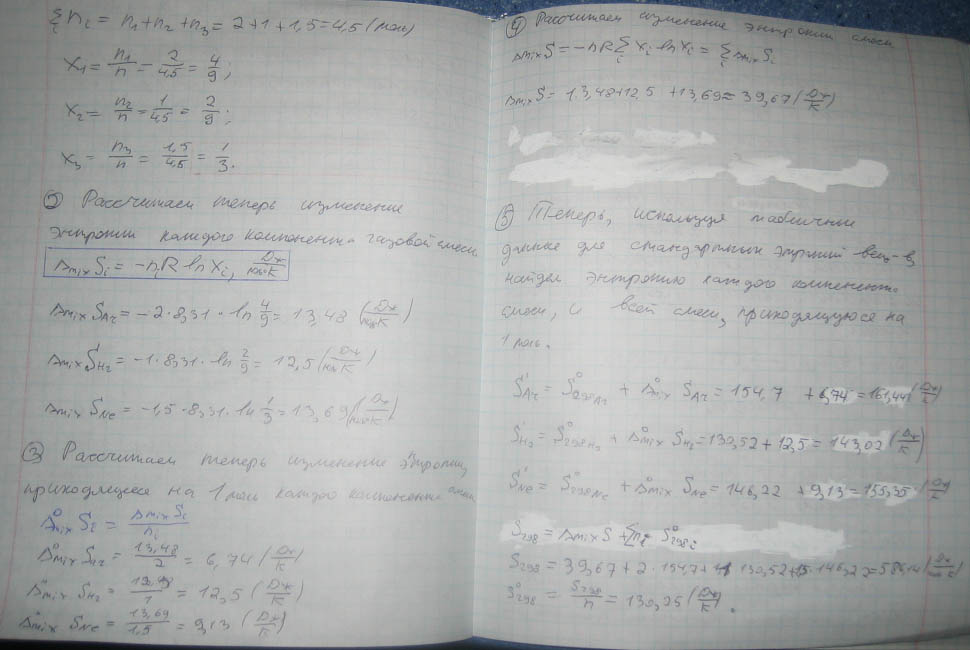 ∑nᵢ = n₁+n₂+n₃ = 2+1+1,5=4,5 (моль)
X₁ = n₁/n = 2/4,5 = 4/9;
X₂ = n₂/n = 1/4,5 = 2/9;
X₃ = n₃/n = 1,5/4,5 = 1/3.
② Рассчитаем теперь изменение
энтропии каждого компонента газовой смеси
ΔmixSᵢ = -nᵢR ln Xᵢ, Дж/моль·К
Δmix S_Ar = -2·8,31·ln 4/9 = 13,48 (Дж/моль·К)
Δmix S_H₂ = -1·8,31·ln 2/9 = 12,5 (Дж/моль·К)
Δmix S_Ne = -1,5·8,31·ln 1/3 = 13,69 (Дж/моль·К)
③ Рассчитаем теперь изменение энтропии,
приходящееся на 1 моль каждого компонента смеси
Δ°mix Sᵢ = Δmix Sᵢ/nᵢ
Δ°mix S_Ar = 13,48/2 = 6,74 (Дж/К)
Δ°mix S_H₂ = /1 = 12,5 (Дж/К)
Δ°mix S_Ne = 13,69/1,5 = 9,13 (Дж/К)
④ Рассчитаем изменение энтропии смеси
Δmix S = -nR∑ Xᵢ ln Xᵢ = ∑ Δmix Sᵢ
Δmix S = 13,48+12,5 +13,69 = 39,67 (Дж/К)
⑤ Теперь, используя табличные
данные для стандартных энтропий вещ-в,
найдем энтропию каждого компонента
смеси, и всей смеси, приходящуюся на
1 моль.
S'_Ar = S°298Ar + Δ°mix S_Ar = 154,7 + 6,74 = 161,44 (Дж/К)
S'_H₂ = S°298H₂ + Δ°mix S_H₂ = 130,52 + 12,5 = 143,02 (Дж/К)
S'_Ne = S°298Ne + Δ°mix S_Ne = 146,22 + 9,13 = 155,35 (Дж/К)
S298 = Δmix S + ∑nᵢ S°298ᵢ
S298 = 39,67 + 2·154,7 + 1·130,52 + 1,5·146,22 =
S°298 = S298/n = (Дж/К).